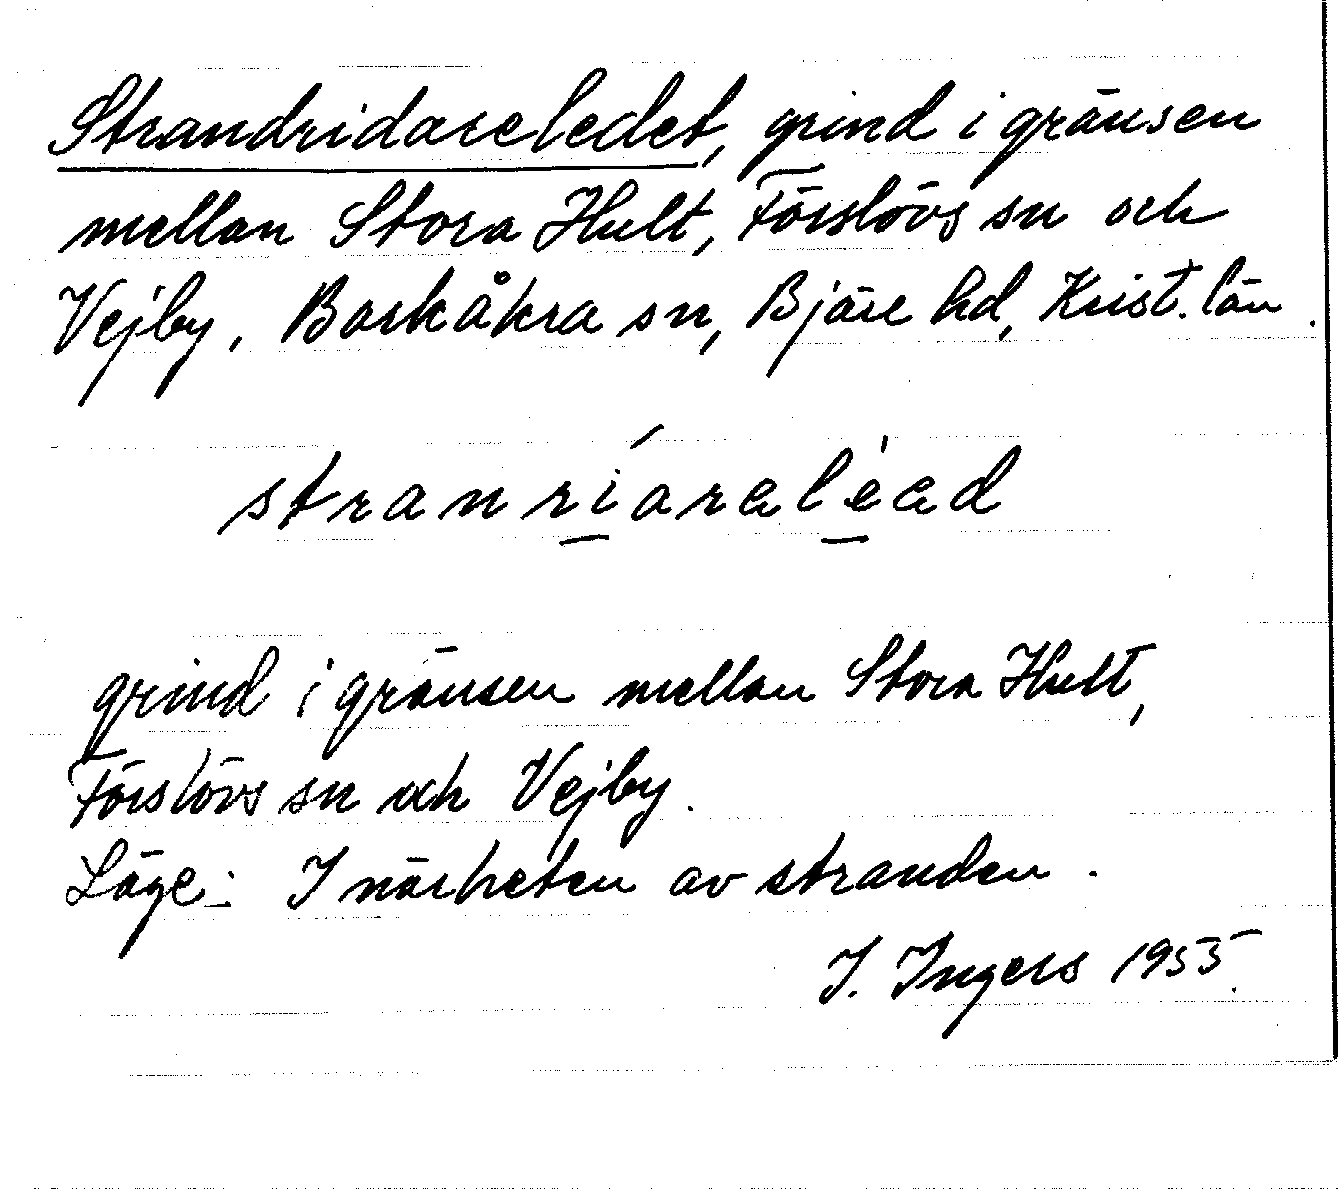 Strandridareledet, grind i gränsen
mellan Stora Hult, Förslövs sn och
Vejby, Barkåkra sn, Bjäre hd, Krist. län.
stranríaraléad
grind i gränsen mellan Stora Hult,
Förslövs sn och Vejby.
Läge: I närheten av stranden.
I. Ingers 1955.